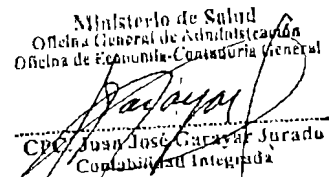 Ministerio de Salud
Oficina General de Administración
Oficina de Economía-Contaduría General
CPC. Juan José Garayar Jurado
Contabilidad Integrada